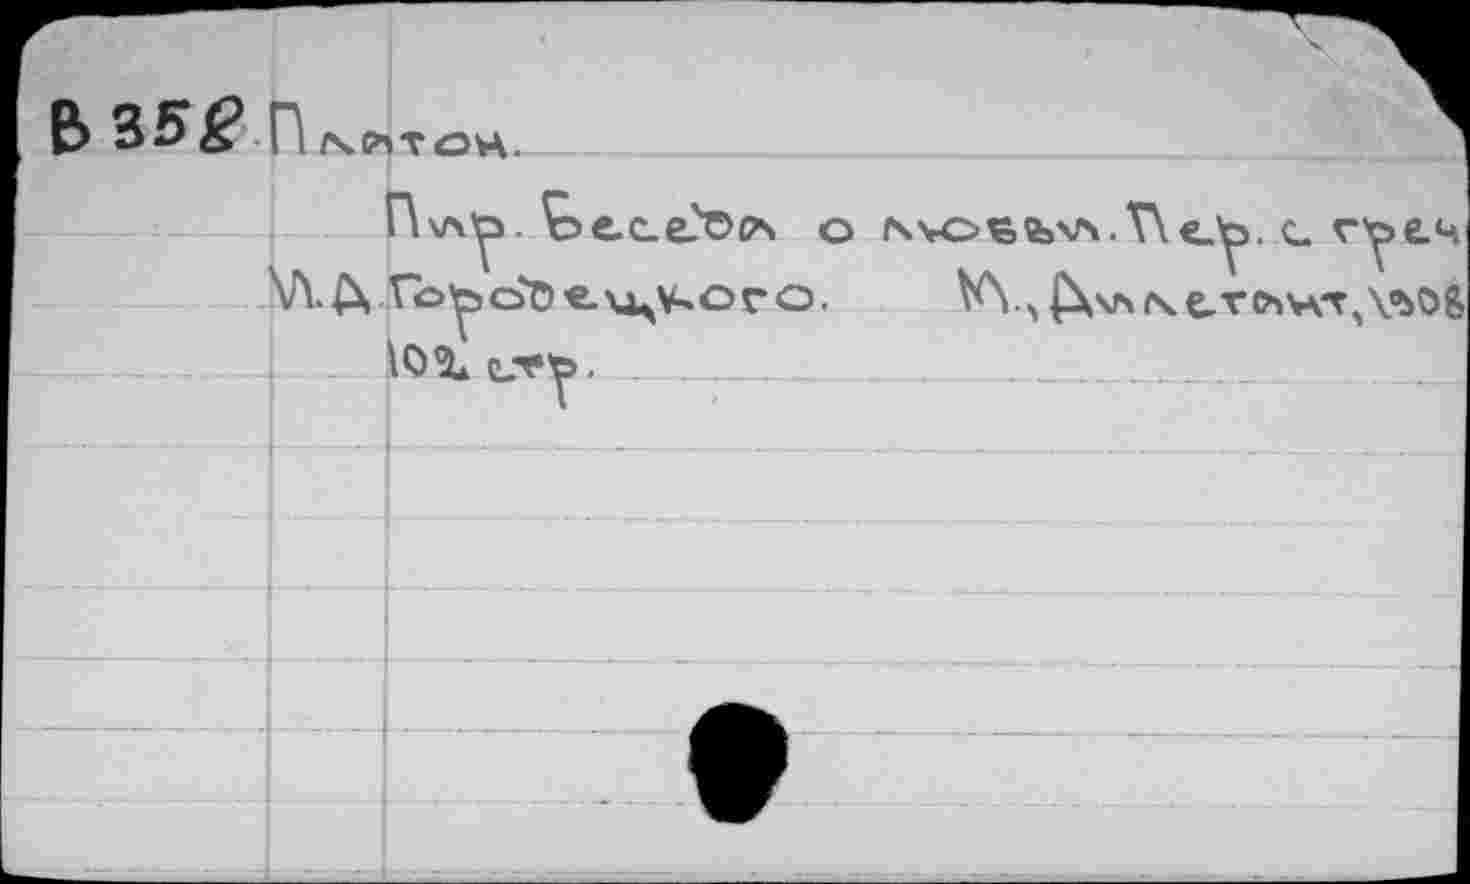 В 352 Платон.
Пир. Беседа о любви. Пер. с греч
И.Д Городецкого. М., Дилетант, 1908
102 стр.